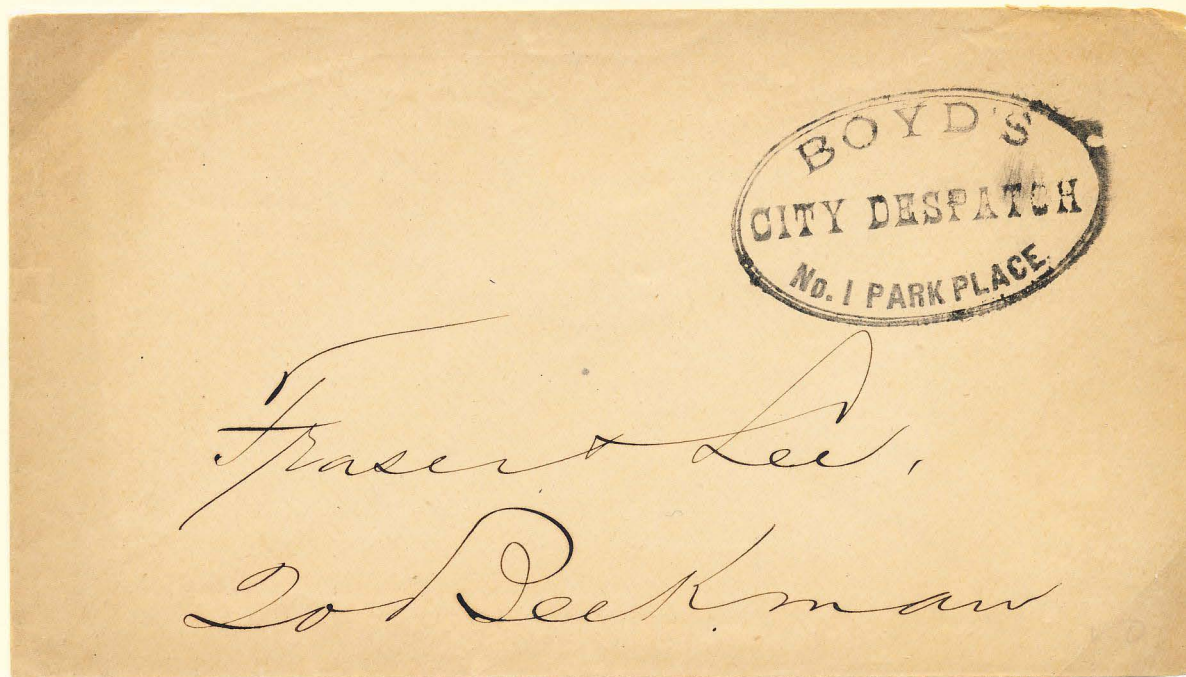 BOYD'S
CITY DESPATCH
No. 1 PARK PLACE.
Fraser & Lee,
20 Beekman